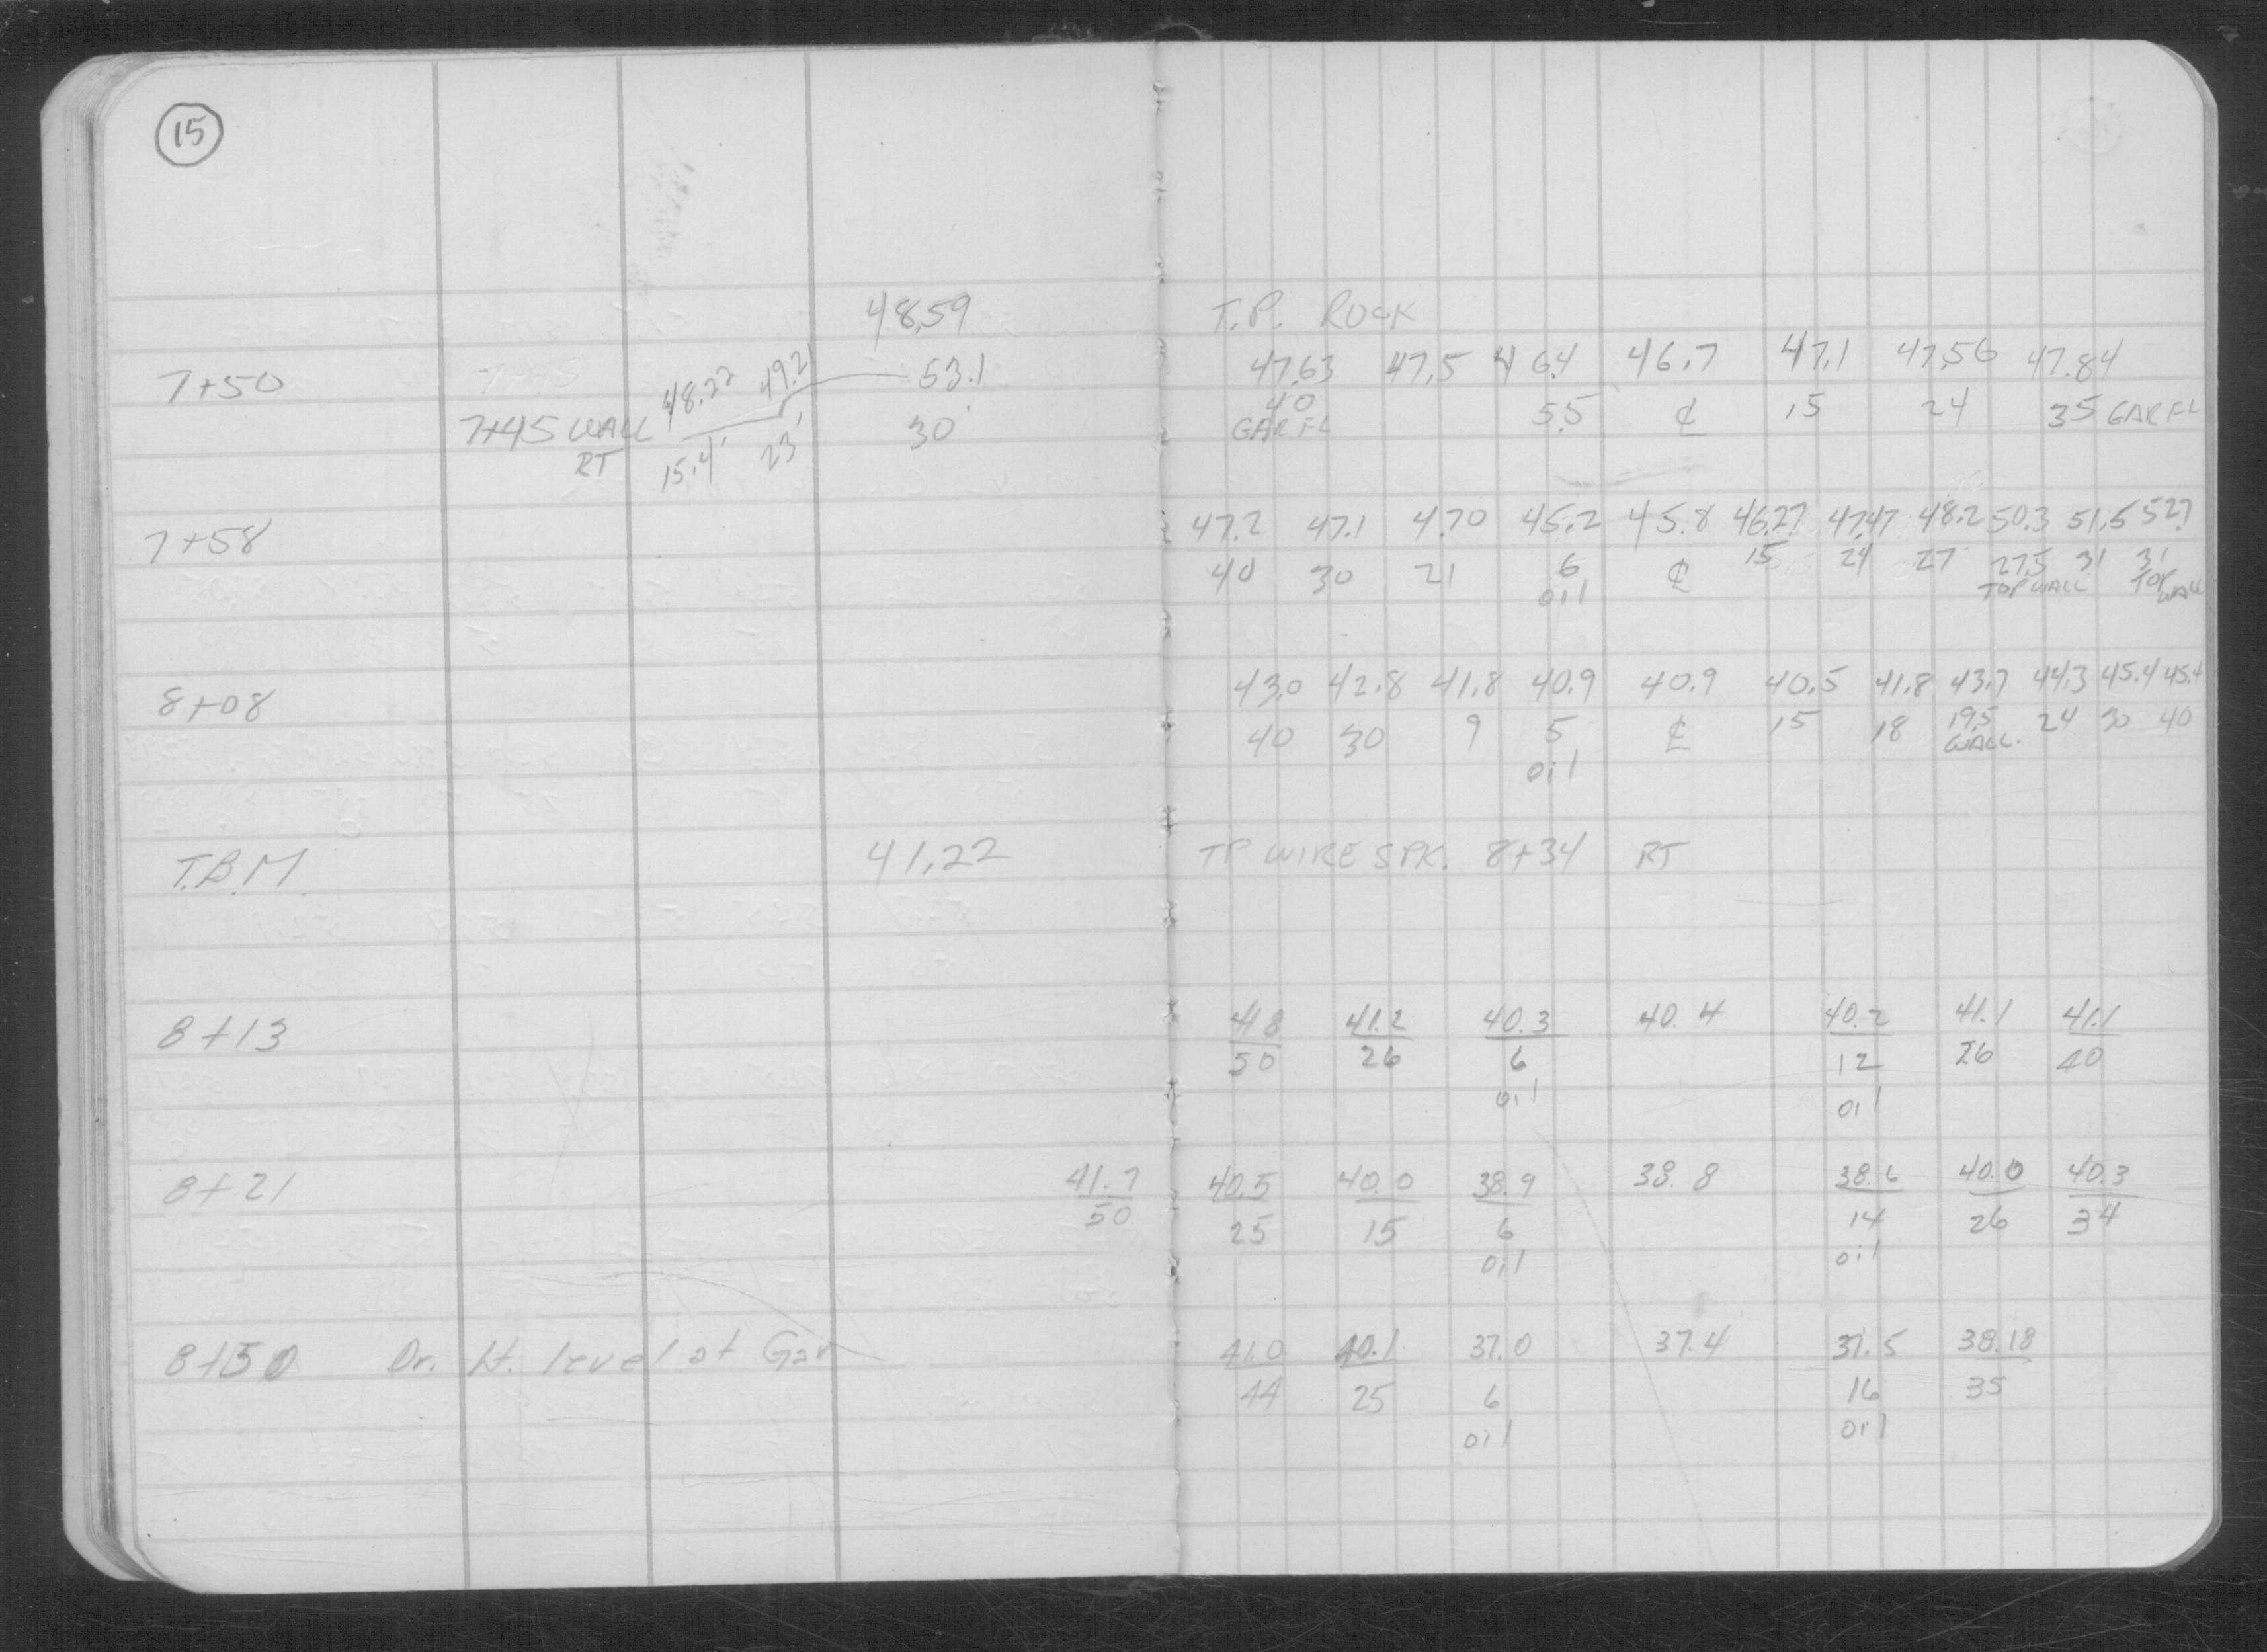 15
48.59 T.P. ROCK
7+50 48.22 49.21 53.1 47.63 47.5 46.4 46.7 47.1 47.56 47.84
7+45 WALL 15.4' 23' 30' 40 5.5 ℄ 15 24 35 GAR FL
RT GAR FL
7+58 47.2 47.1 47.0 45.2 45.8 46.27 47.47 48.2 50.3 51.5 52.7
40 30 21 6 ℄ 15 24 27 27.5 31 31
oil TOP WALL TOP WALL
8+08 43.0 42.8 41.8 40.9 40.9 40.5 41.8 43.7 44.3 45.4 45.4
40 30 9 5 ℄ 15 18 19.5 24 30 40
oil WALL.
T.B.M. 41.22 TP WIRE SPK. 8+34 RT
8+13 41.8 41.2 40.3 40.4 40.2 41.1 41.1
50 26 6 12 26 40
oil oil
8+21 41.7 40.5 40.0 38.9 38.8 38.6 40.0 40.3
50 25 15 6 14 26 34
oil oil
8+50 Dr. Lt. level at Gar 41.0 40.1 37.0 37.4 37.5 38.18
44 25 6 16 35
oil oil